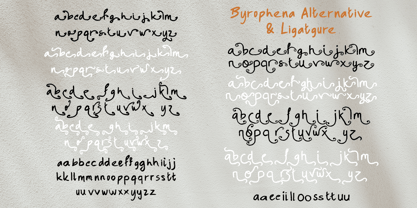 abcdefghijklm
nopqrstuvwxyz
abcdefghijklm
nopqrstuvwxyz
abcdefghijklm
nopqrstuvwxyz
abcdefghijklm
nopqrstuvwxyz
aabbccddeeffgghhiijj
kkllmmnnooppqqrrsstt
uuvvwwxxyyzz
Byrophena Alternative
& Ligatgure
abcdefghijklm
nopqrstuvwxyz
abcdefghijklm
nopqrstuvwxyz
abcdefghijklm
nopqrstuvwxyz
abcdefghijklm
nopqrstuvwxyz
aaeeiillOOssttuu